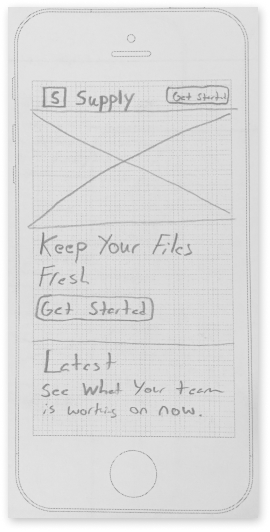 S Supply Get Started
Keep Your Files
Fresh
Get Started
Latest
See What Your team
is working on now.